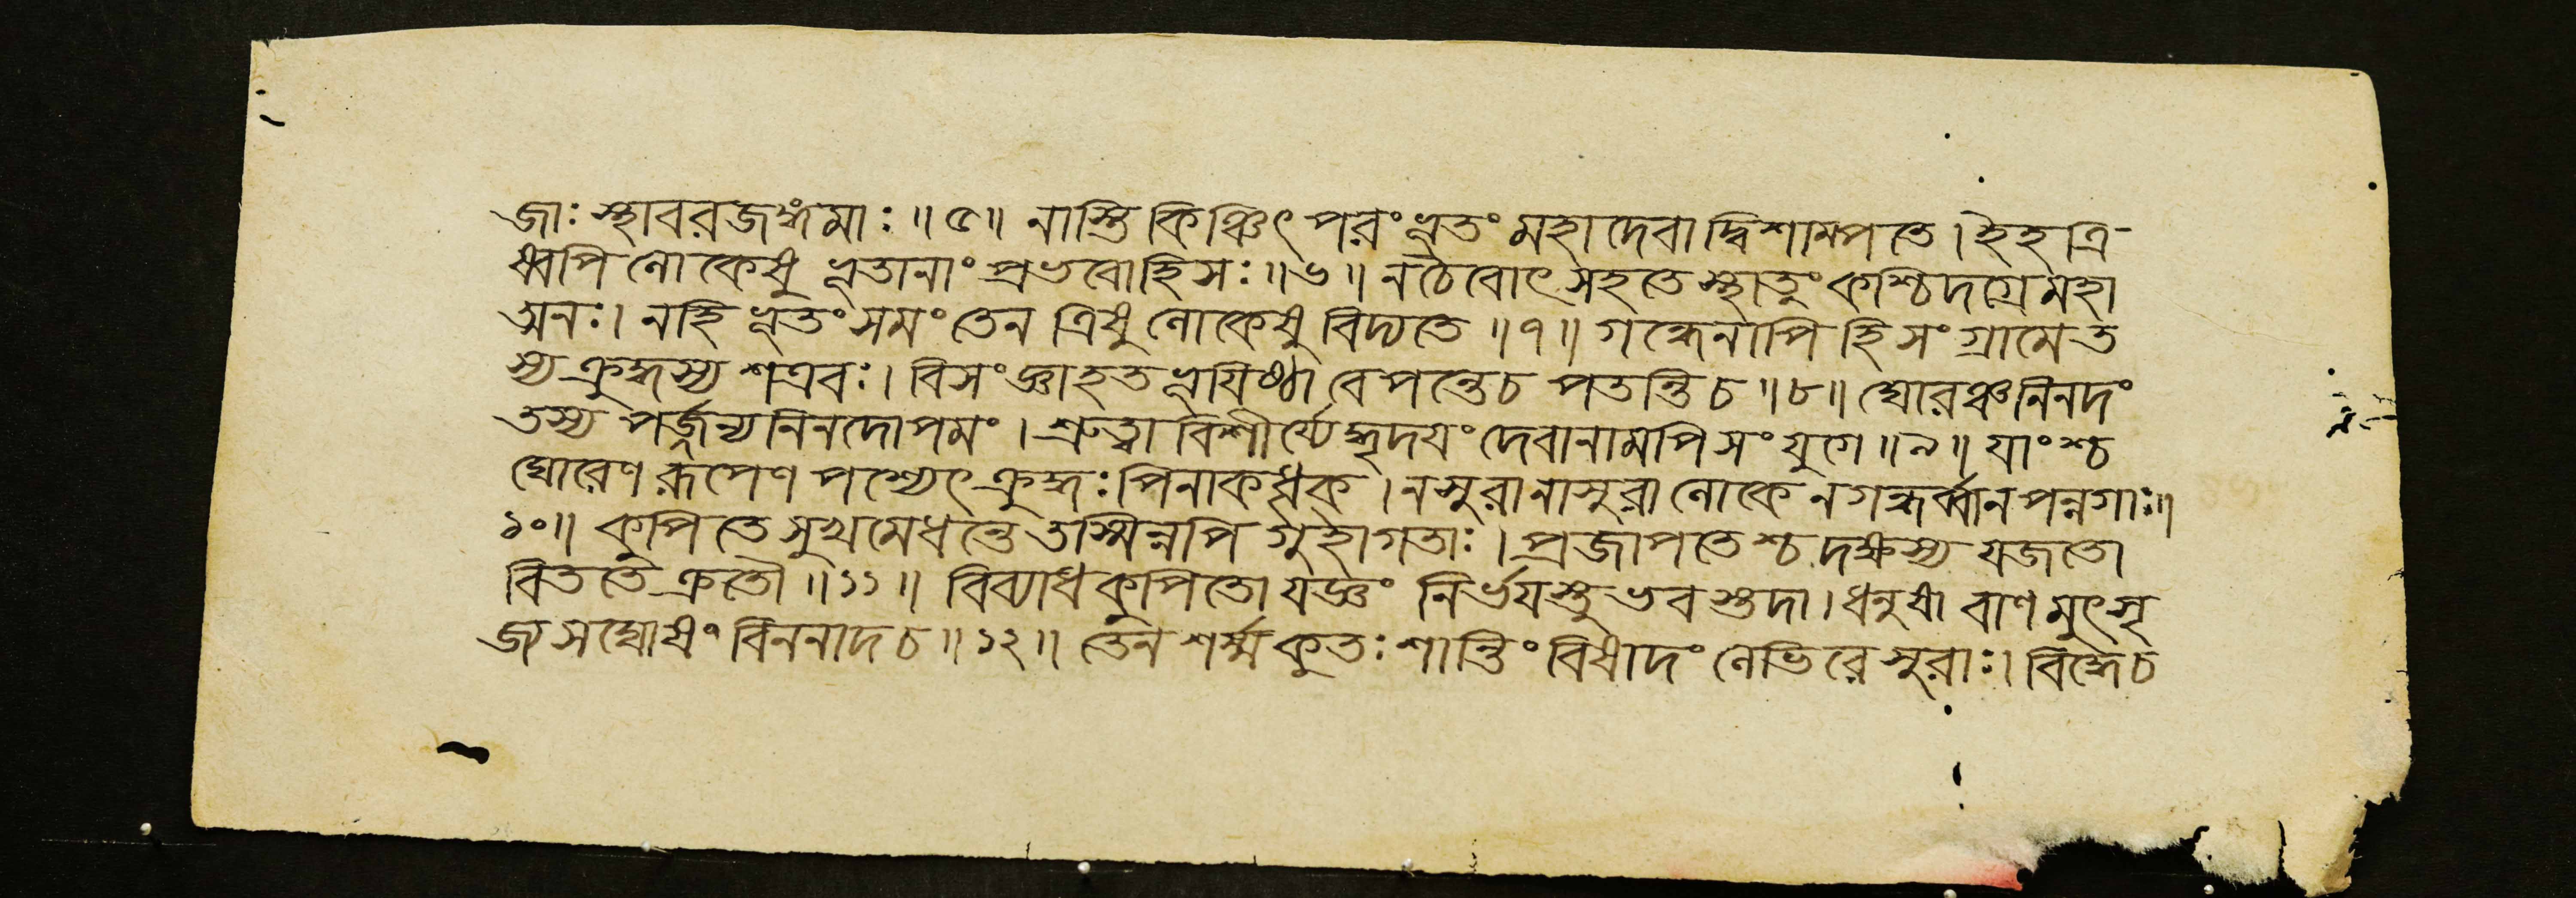 জাঃ স্থাবরজঙ্গমাঃ ॥ ৫ ॥ নাস্তি কিঞ্চিৎ পরং ভূতং মহাদেবাদ্বিশাম্পতে । ইহ ত্রি-
ষ্বপি লোকেষু ভূতানাং প্রভবোহিসঃ ॥ ৬ ॥ নচৈবোৎসহতে স্থাতুং কশ্চিদগ্রে মহা
ত্মনঃ । নহি ভূতং সমং তেন ত্রিষু লোকেষু বিদ্যতে ॥ ৭ ॥ গন্ধেনাপি হি সংগ্রামে ত
স্য ক্রুদ্ধস্য শত্রবঃ । বিসংজ্ঞাহতভূযিষ্ঠা বেপন্তেচ পতন্তিচ ॥ ৮ ॥ ঘোরঞ্চ নিনদং
তস্য পর্জ্জন্যনিনদোপমং । শ্রুত্বা বিশীর্য্যেদ্ধৃদযং দেবানামপি সংযুগে ॥ ৯ ॥ যাংশ্চ
ঘোরেণ রূপেণ পশ্যেৎ ক্রুদ্ধঃ পিনাকধৃক । ন সুরা নাসুরা লোকে ন গন্ধর্ব্বা ন পন্নগাঃ ॥
১০ ॥ কুপিতে সুখমেধন্তে তস্মিন্নপি গুহাগতাঃ । প্রজাপতেশ্চ দক্ষস্য যজতো
বিততে ক্রতৌ ॥ ১১ ॥ বিব্যাধ কুপিতো যজ্ঞং নির্ভযস্তু ভবস্তদা । ধনুষা বাণমুৎসৃ
জ্য সঘোষং বিননাদ চ ॥ ১২ ॥ তেন শর্ম্ম কুতঃ শান্তিং বিষাদং লেভিরে সুরাঃ । বিদ্ধেচ